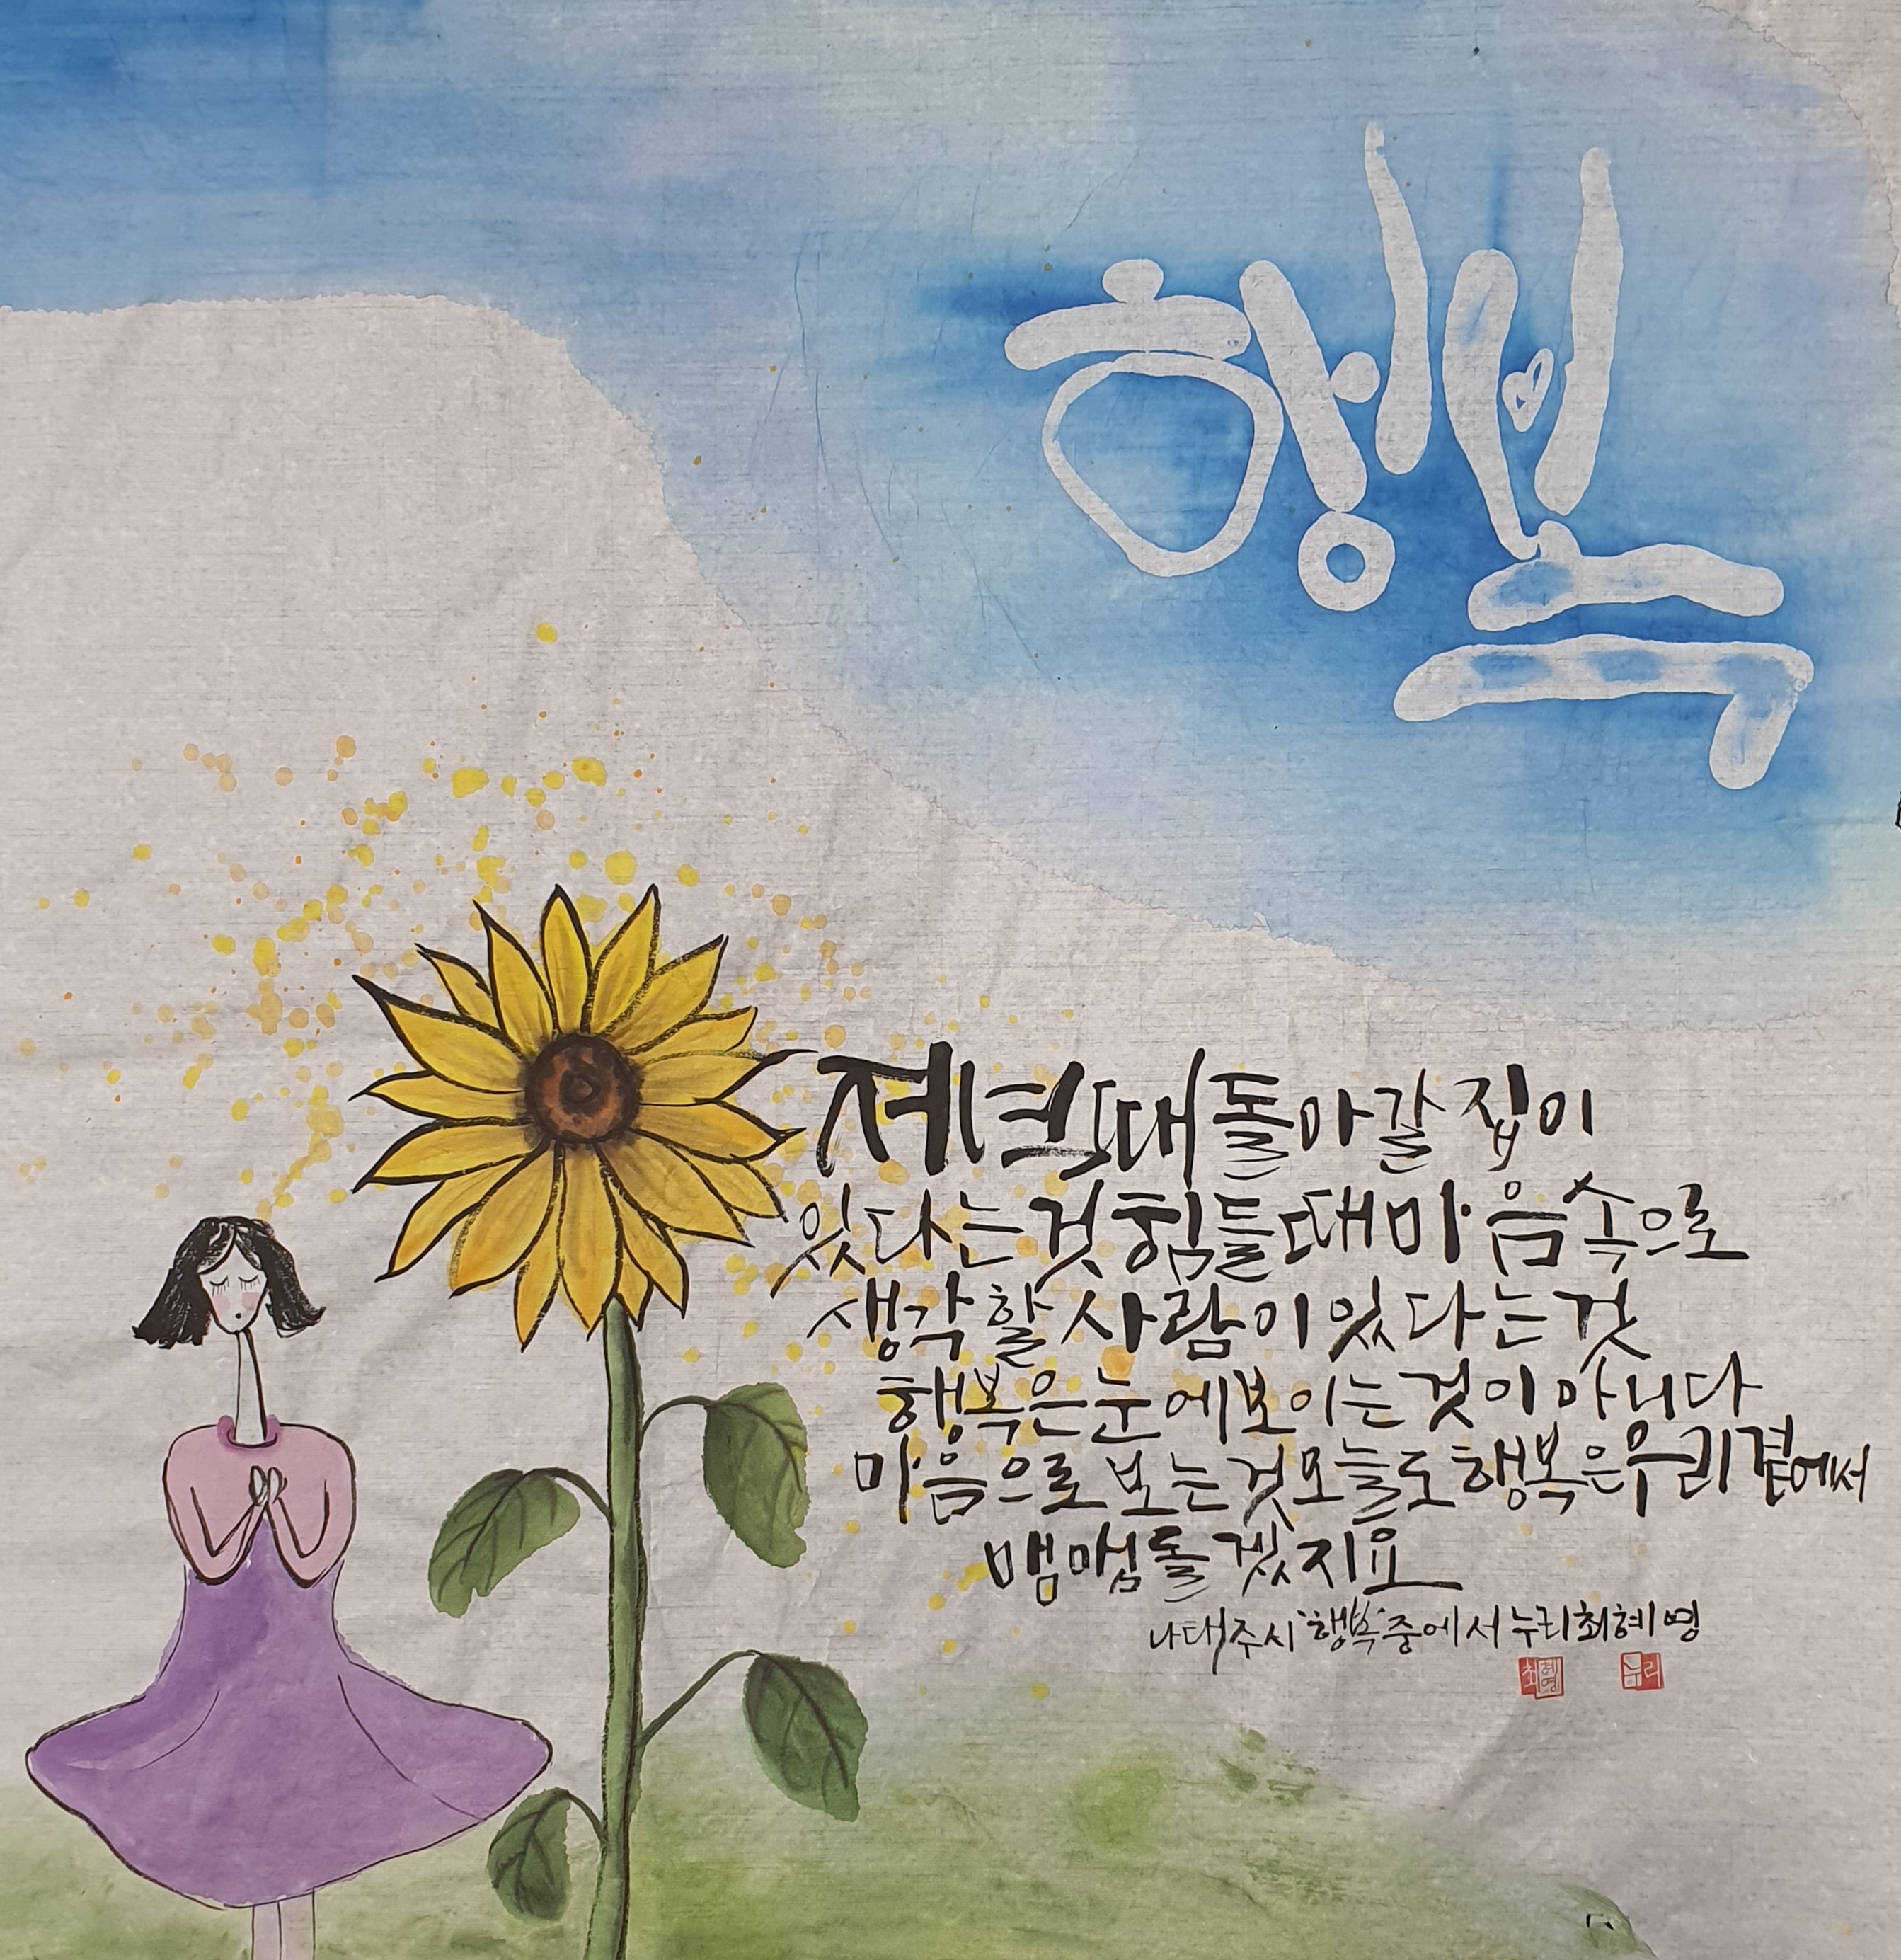 행복
저녁때 돌아갈 집이
있다는 것 힘들때 마음속으로
생각할 사람이 있다는 것
행복은 눈에 보이는 것이 아니다
마음으로 보는 것 오늘도 행복은 우리 곁에서
맴맴돌겠지요
나태주시 '행복' 중에서 누리 최혜영
최혜영 누리